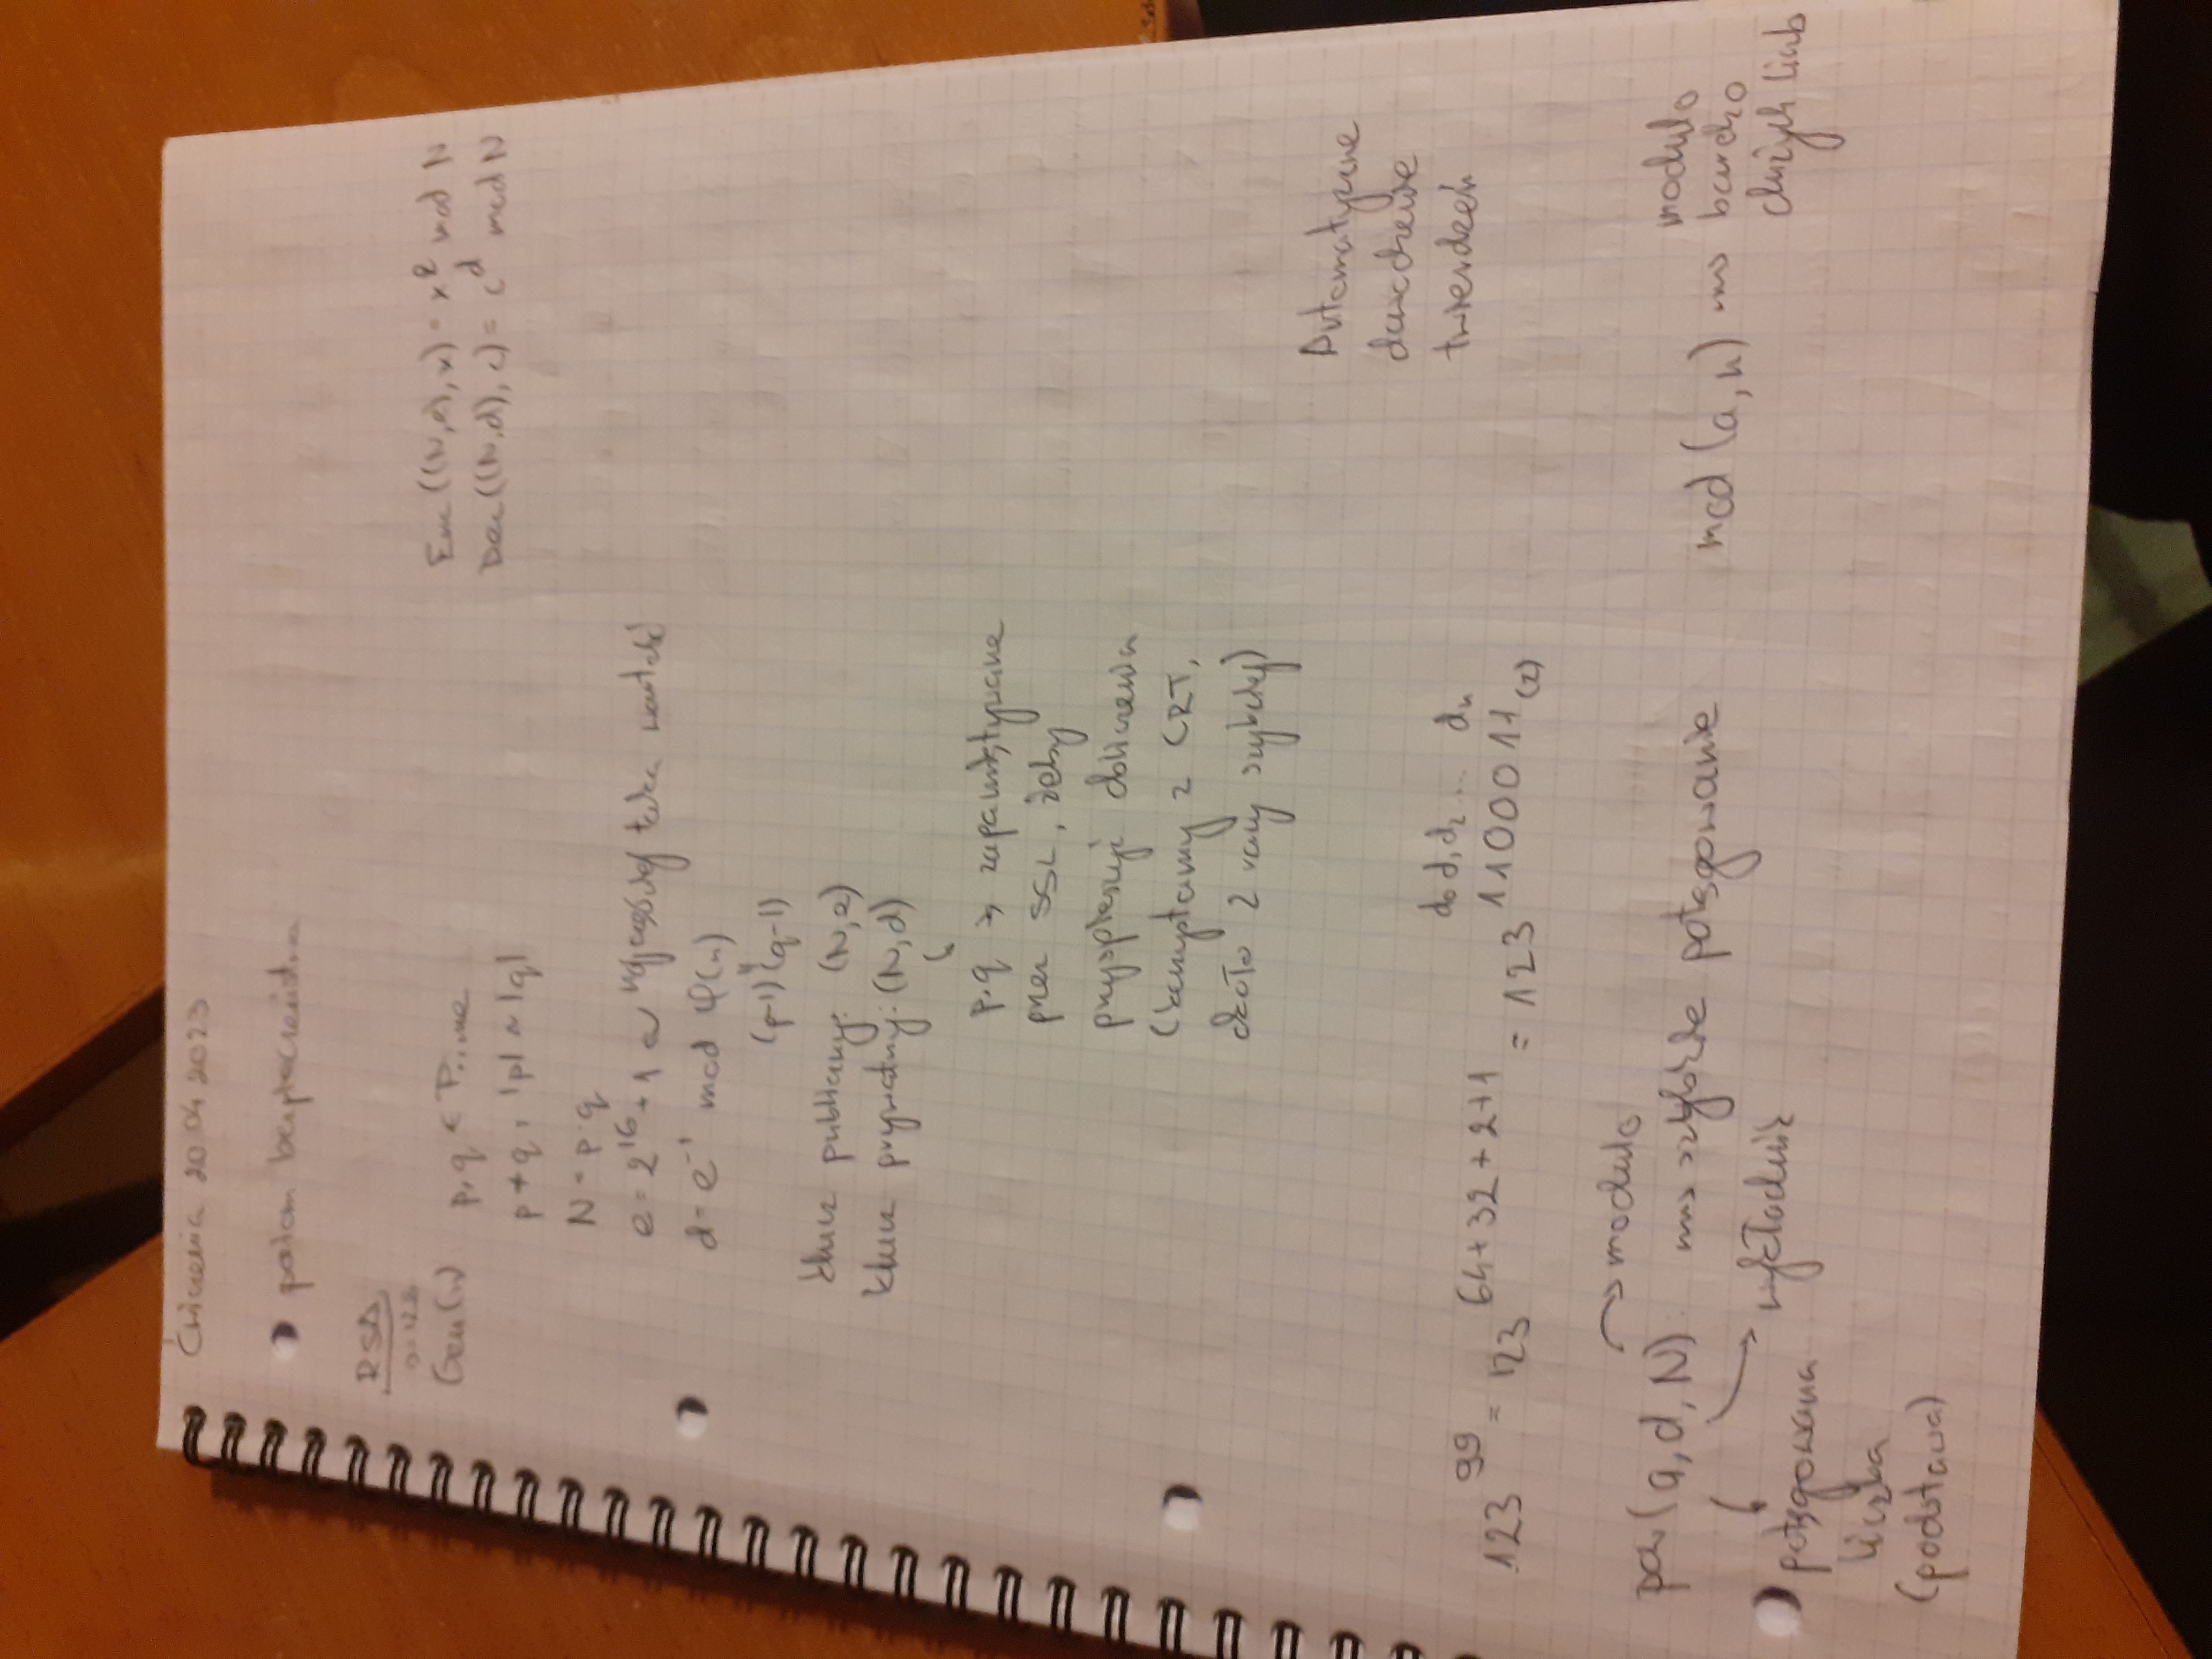 Ćwiczenia 20.04.2023
poziom bezpieczeństwa
RSA
n=128
Gen(n) p, q ∈ Prime
p ≠ q, |p| ~ |q|
N = p·q
e = 2^16 + 1 ~ najczęściej taka wartość
d = e^-1 mod φ(n)
(p-1)(q-1)
klucz publiczny: (N,e)
klucz prywatny: (N,d)
p, q → zapamiętywane
przez SSL, żeby
przyspieszyć obliczenia
(korzystamy z CRT,
około 2 razy szybciej)
Enc((N,e),x) = x^e mod N
Dec((N,d),c) = c^d mod N
Automatyczne
dowodzenie
twierdzeń
d0 d1 d2 ... dn
123^99 = 123^64+32+2+1 = 123^1100011(2)
→ modulo
pow(a,d,N) ~> szybkie potęgowanie
→ wykładnik
potęgowana
liczba
(podstawa)
mod (a,n) ~> modulo
bardzo
dużych liczb